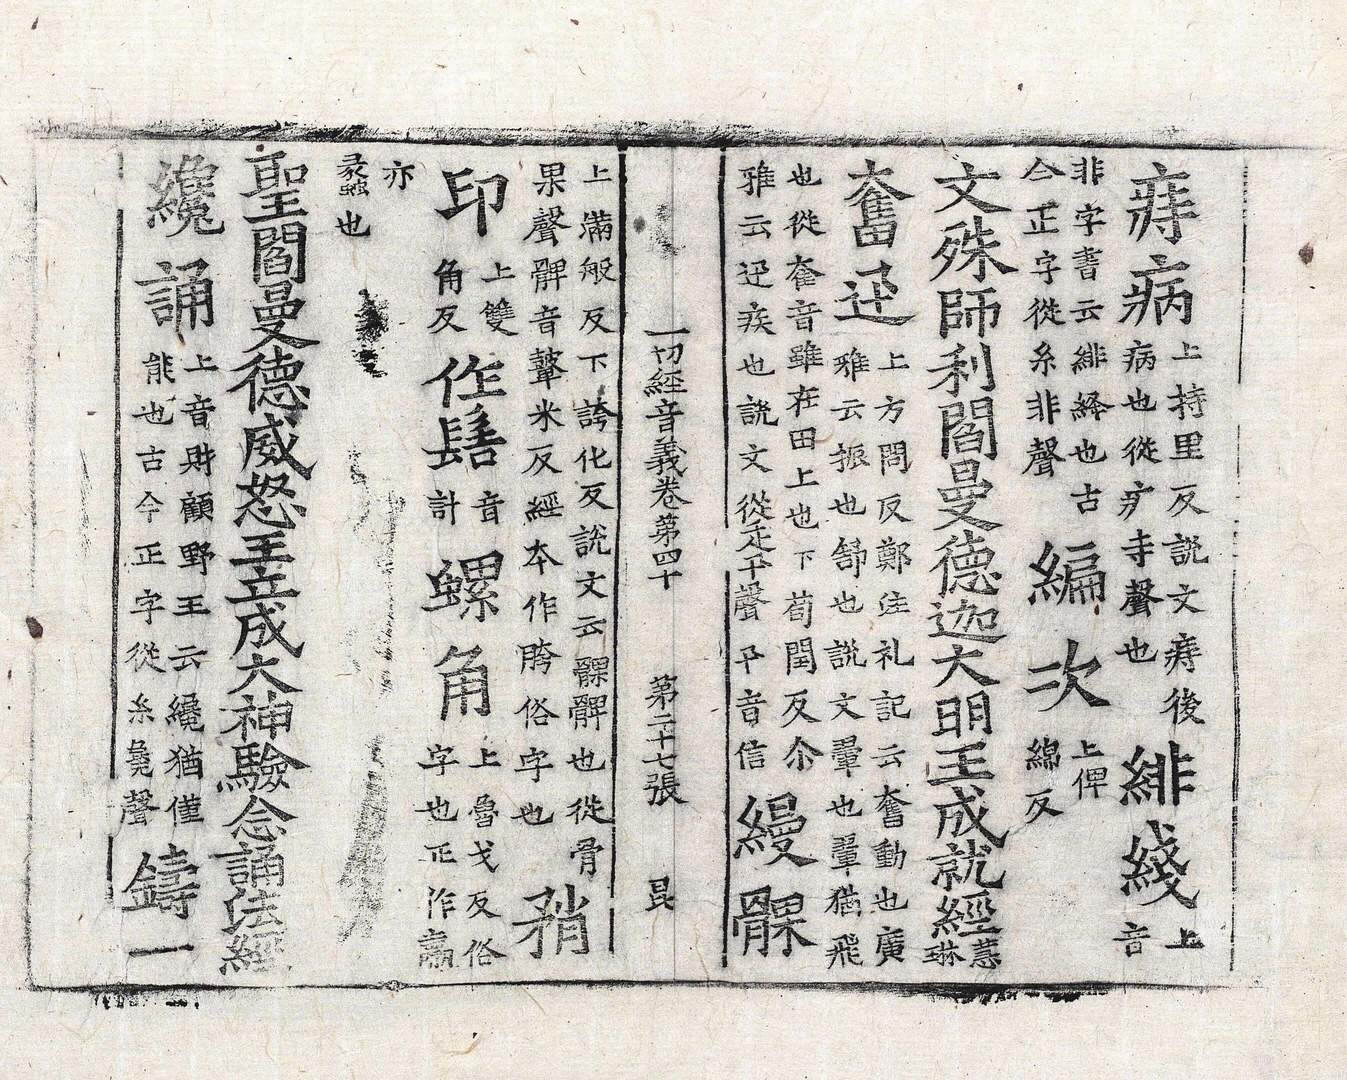 痔病上持里反説文痔後病也從疒寺聲也緋綫上音
非字書云緋絳也古今正字從糸非聲編次上俾綿反
文殊師利閻曼德迦大明王成就經慧琳
奮迅上方問反鄭注礼記云奮動也廣雅云振也舒也説文翬也翬猶飛
也從奞音雖在田上也下荀閏反尒雅云迅疾也説文從辵卂聲卂音信縵髁
一切經音義卷第四十 第二十七張 昆
上滿般反下誇化反説文云髁髀也從骨果聲髀音鼙米反經本作胯俗字也矟
印上雙角反作髻音計螺角上魯戈反俗字也正作蠃
亦 也
聖閻曼德威怒王立成大神驗念誦法經
纔誦上音財顧野王云纔猶僅能也古今正字從糸毚聲鑄一